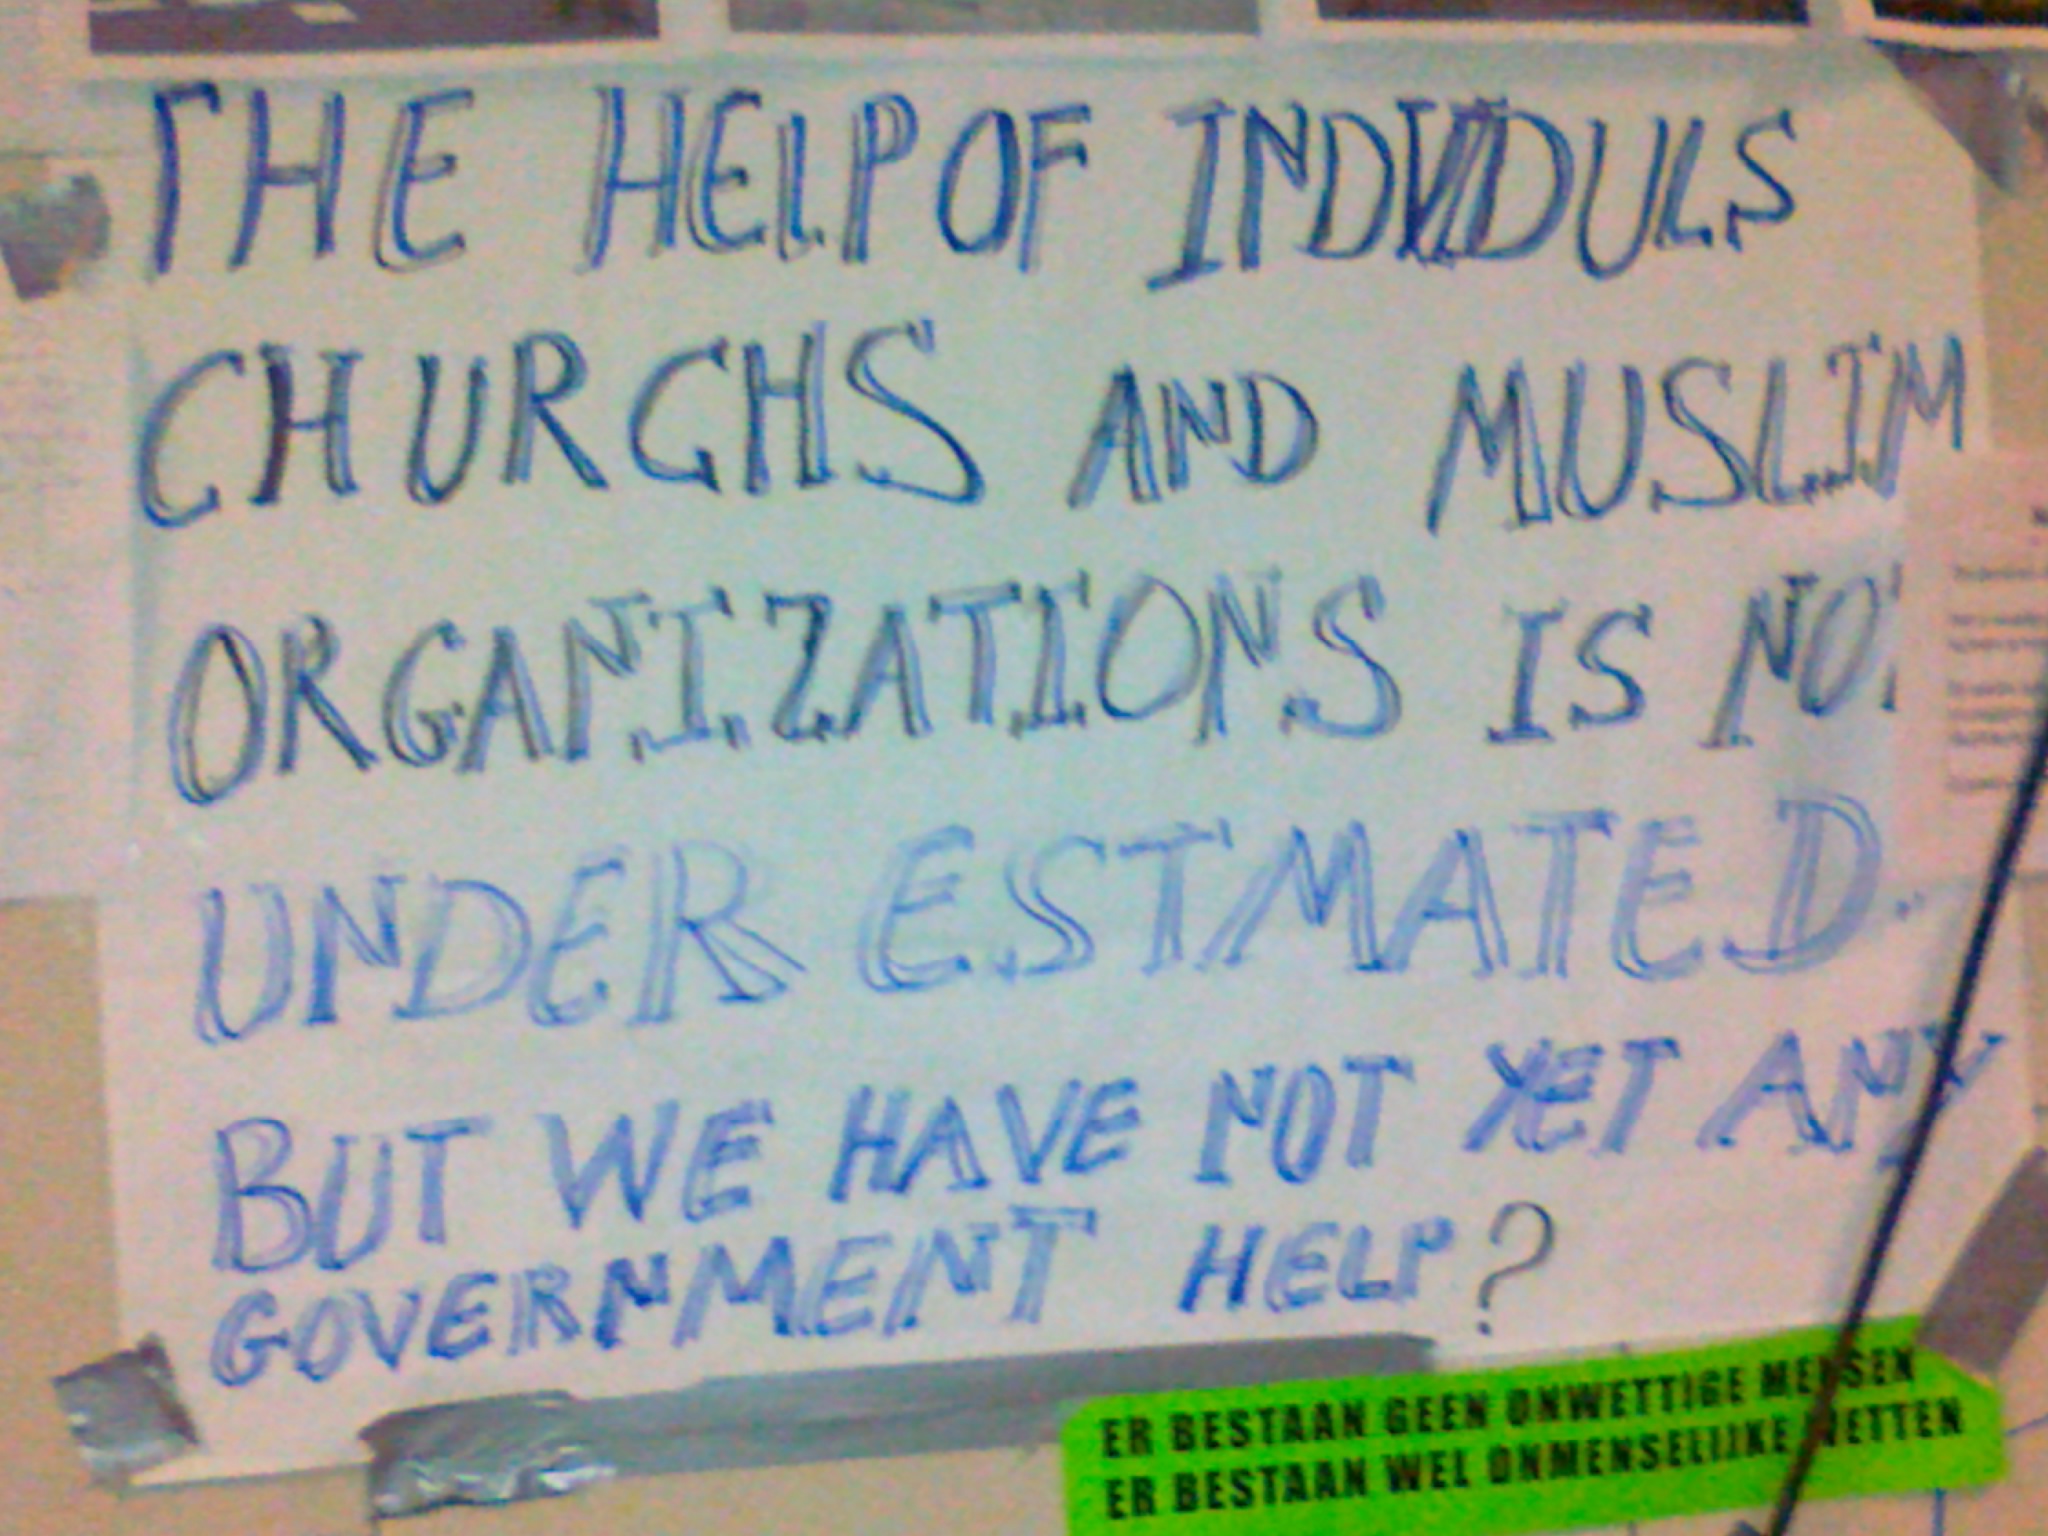 THE HELP OF INDVIDULS
CHURCHS AND MUSLIM
ORGANIZATIONS IS NOT
UNDER ESTMATED..
BUT WE HAVE NOT YET ANY
GOVERNMENT HELP?
ER BESTAAN GEEN ONWETTIGE MENSEN
ER BESTAAN WEL ONMENSELIJKE WETTEN